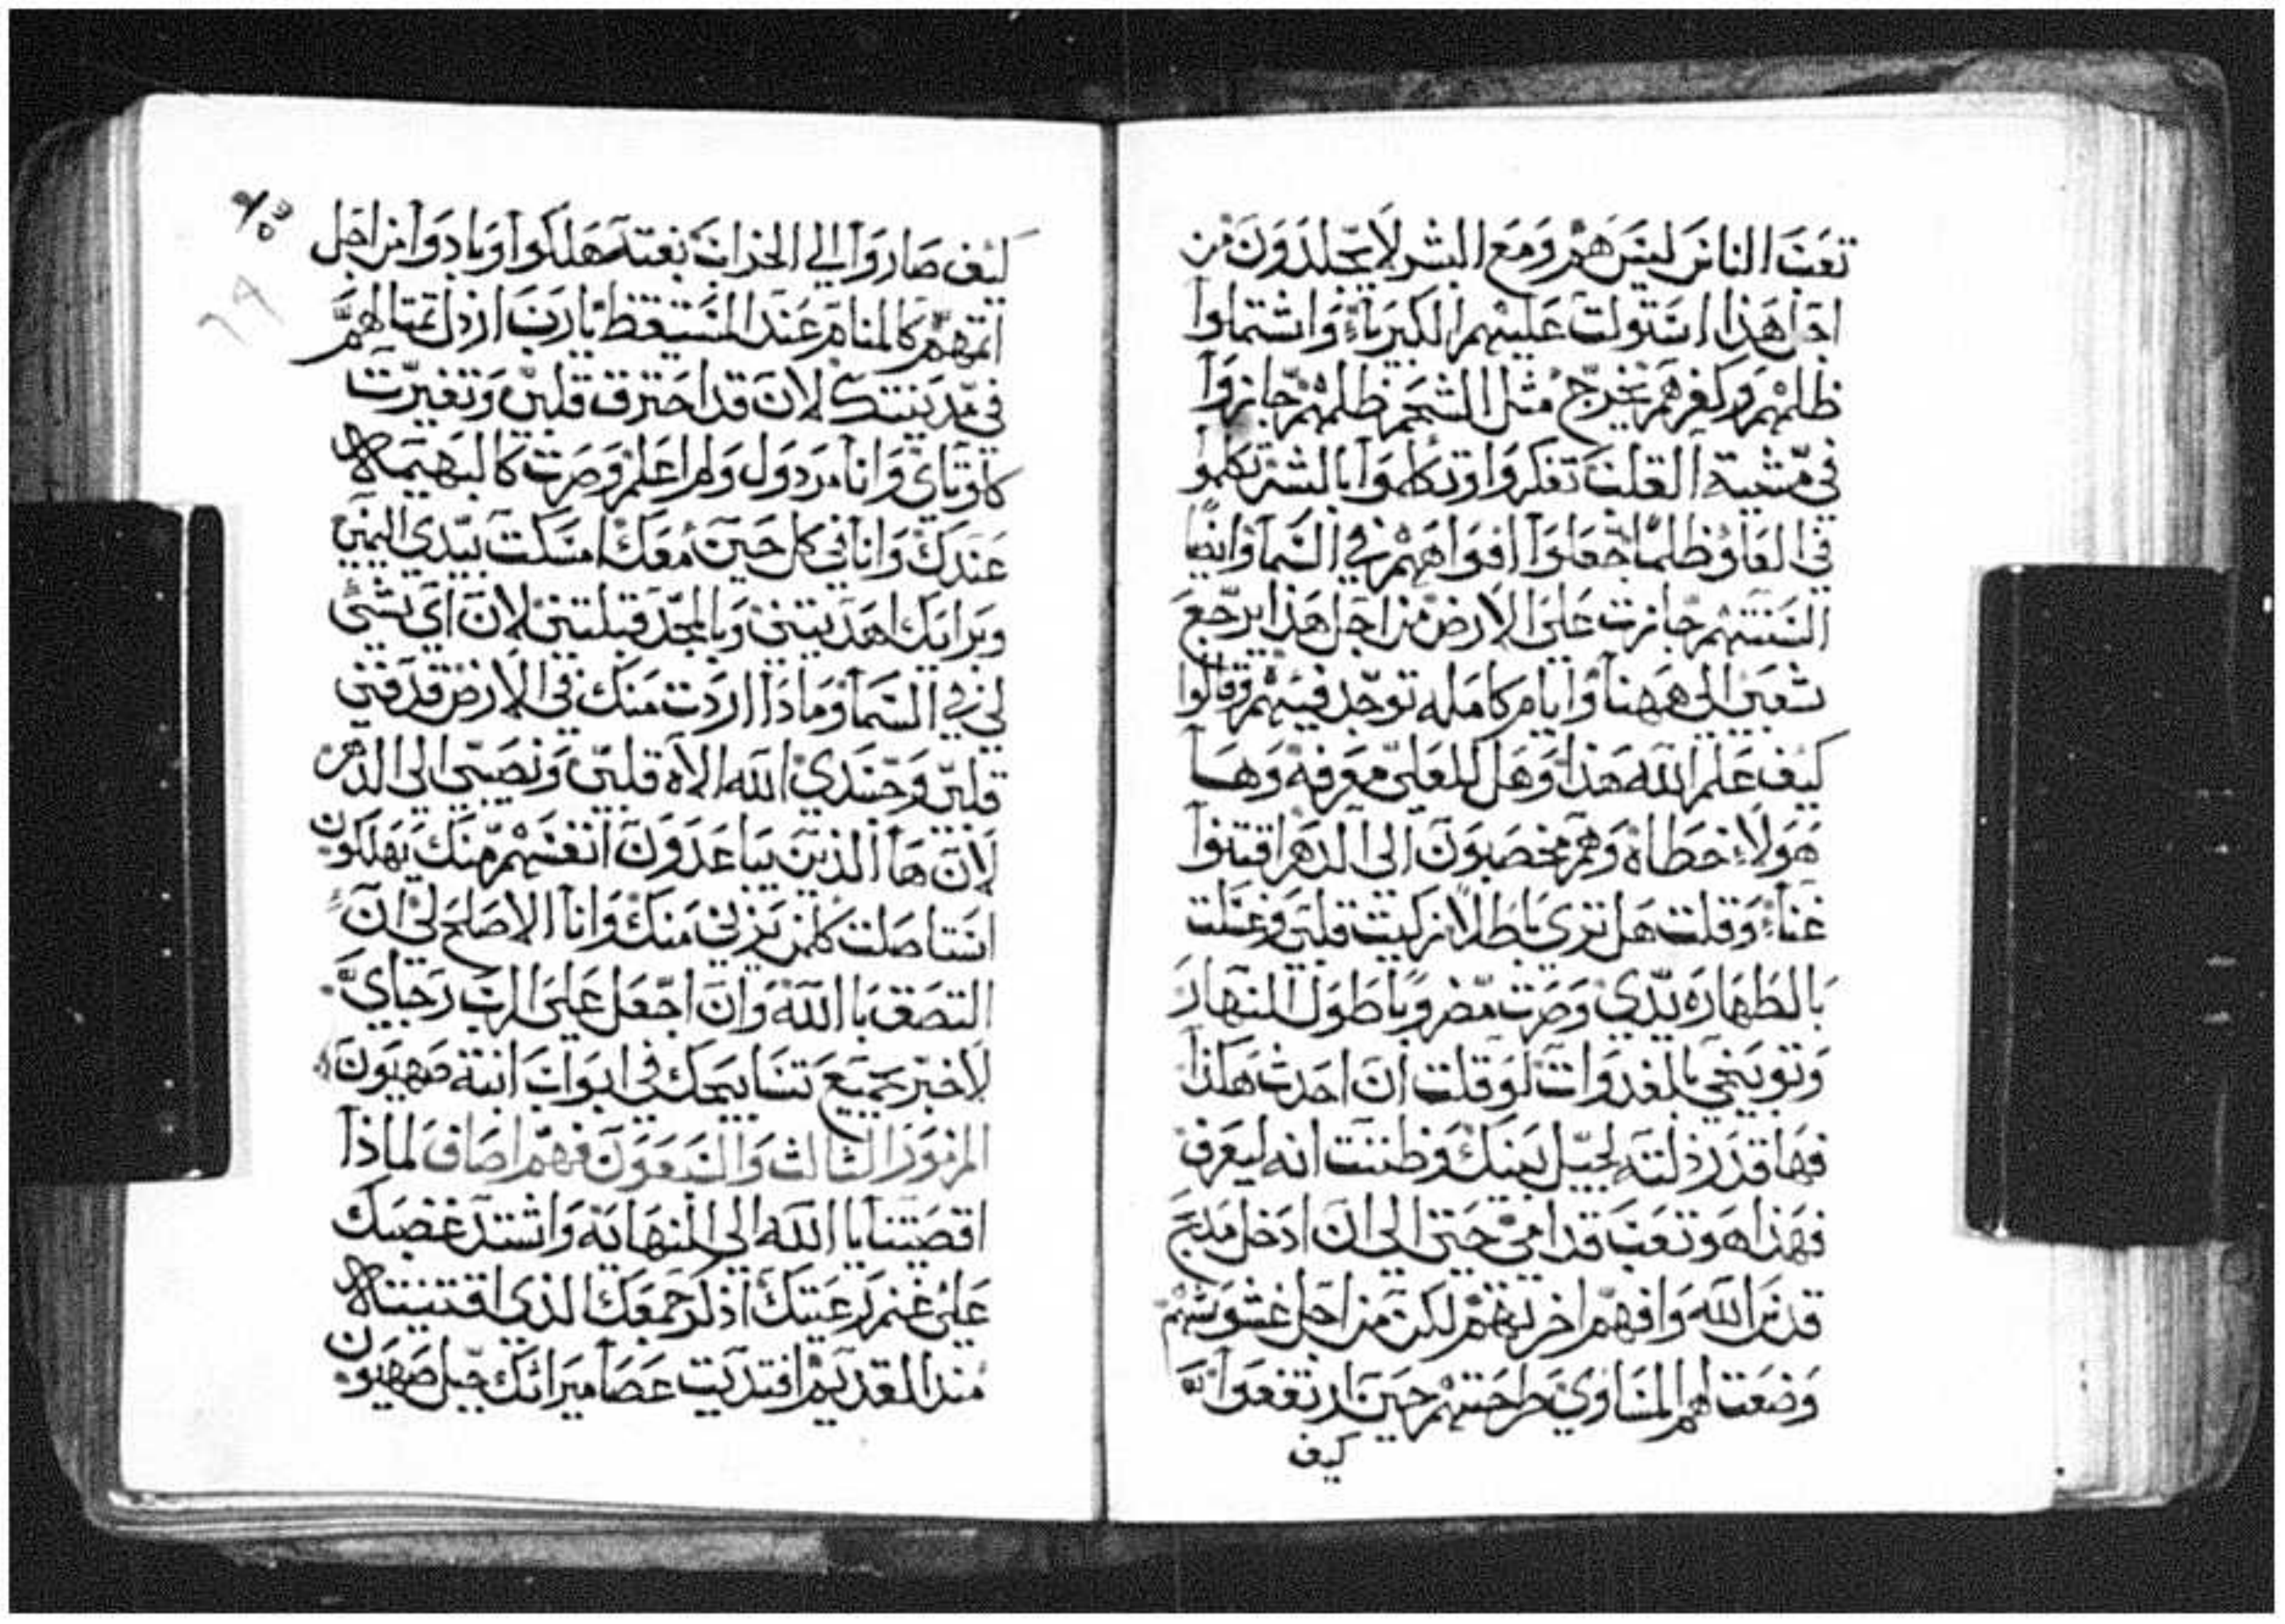 تعَبَ الناسَ ليسَ هم ومَع البشر لا يجلدَون من
اجل هَذا استولت عَليهم الكبرياءُ واشتملوا
ظلمهم وكفرهم يخرج مثل الشحم ظلمهم جازوا
في مشية القلب تفكروا وتكلموا بالشر تكلموا
في العَلو ظلمًا جعَلوا افواههم في السَما وايضًا
السَنتهم جازت على الارض من اجل هذا يرجعَ
شعبي الي ههنا وايام كامله توجد فيهم وقالوا
كيف علم الله هذا وهل للعلي معَرفه وهَا
هَولاء خطاه وهم مخصبون الى الدهر اقتنوا
غناء وقلت هل تري باطلاً زكيت قلبي وغسَلت
بالطهاره يدي وصَرت مضروبًا طول النهار
وتوبيخي بالغدوات لو قلت ان احدث هكذا
فها قد رذلته لجيل بنيك وظننت انه ليعَرف
فهذا هو تعَب قدامي حتى الى ان ادخل مذبح
قدس الله وافهم اخرتهم لكن من اجل غشوشهم
وضعَت لهم المسَاوي طرحتهم حين ارتفعَوا
كيف
كيف صَاروا الي الخراب بغته هَلكوا وبادوا من اجل
اثمهم كالمنام عَند المستيقظ يارب ارذل تمثالهم
في مدينتك لان قد احترق قلبي وتغيرت
كلوتاي وانا مرذول ولم اعَلم وصَرت كالبهيمه
عندك وانا في كل حين معَك امسَكت بيدي اليمني
وبرايك اهديتني وبالمجد قبلتني لان اي شي
لي في السما وماذا اردت منك في الارض قد فني
قلبي وجسَدي الله الاه قلبي ونصَيبي الي الدهر
لان ها الذين يباعَدون انفسهم منك يهلكون
استاصَلت كلمن يزني منك وانا الاصَلح لي ان
التصَق باالله وان اجعَل على الرب رجاي
لاخبر جميع تسَابيحك في ابواب ابنة صَهيون
المزمور الثالث والسَبعَون فهم اصَاف لماذا
اقصَيتنا يا الله الي النهايه واشتد غضبك
علي غنم رعَيتك اذكر جمعَك الذي اقتنيته
منذ القديم افتديت عَصَا ميراثك جبل صَهيون